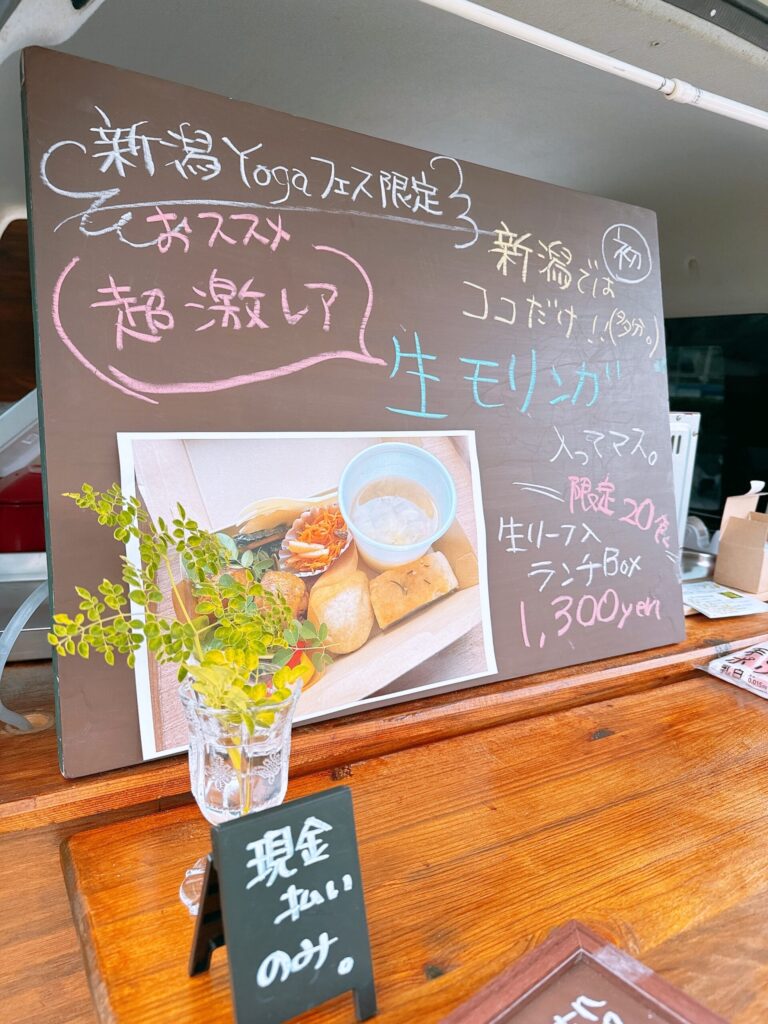 新潟Yogaフェス限定
おススメ
超激レア
初
新潟では
ココだけ!!(多分。)
生モリンガ
入ってマス。
限定20食
生リーフ入
ランチBox
1,300yen
現金
払い
のみ。
乳白